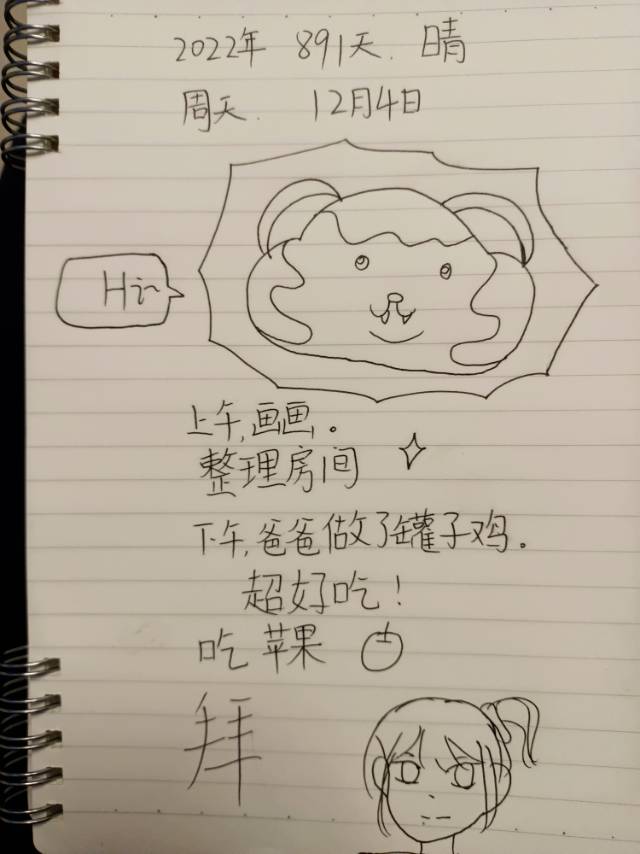 2022年 891天. 晴
周天. 12月4日
Hi~
上午,画画。
整理房间
下午,爸爸做了罐子鸡。
超好吃!
吃苹果
拜